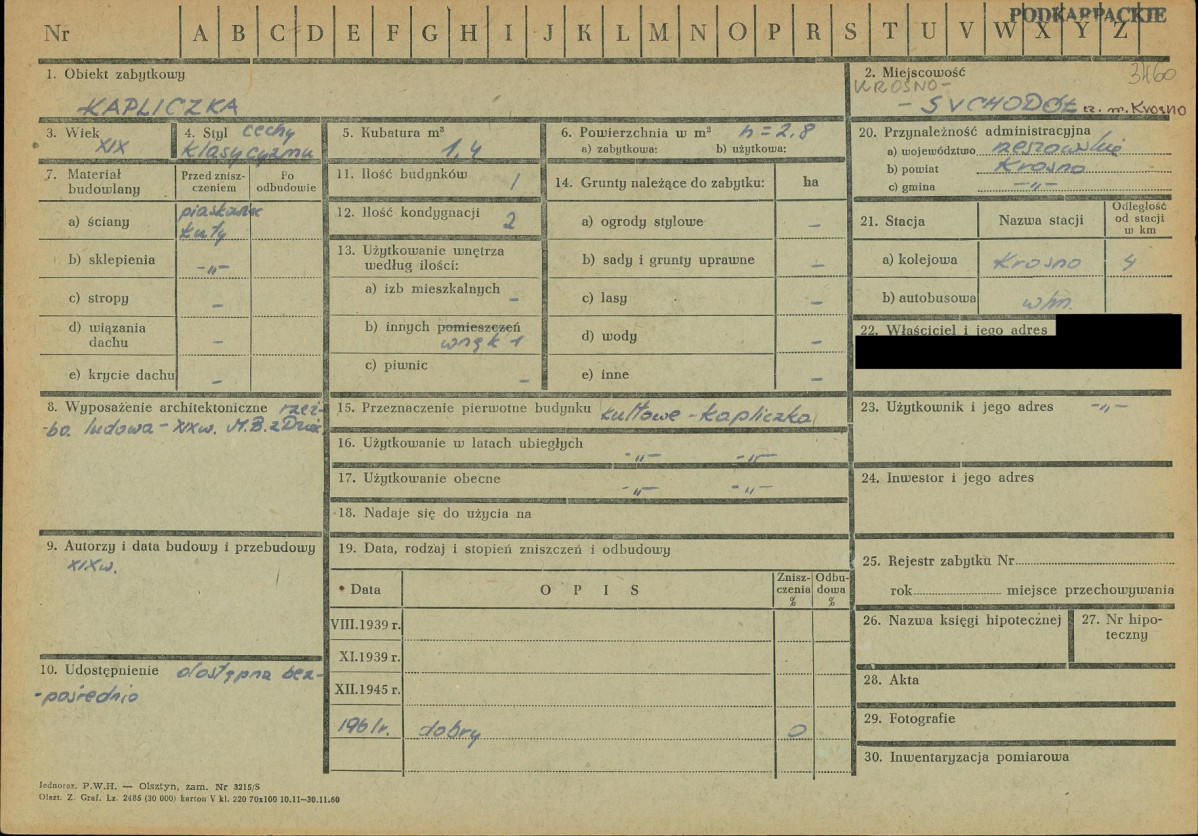 PODKARPACKIE
Nr A B C D E F G H I J K L M N O P R S T U V W X Y Z
3460
1. Obiekt zabytkowy
KAPLICZKA
2. Miejscowość
KROSNO-
- SUCHODÓŁ cz. m. Krosno
3. Wiek
XIX
4. Styl cechy
klasycyzmu
5. Kubatura m³
1,4
6. Powierzchnia w m² h = 2,8
a) zabytkowa: b) użytkowa:
7. Materiał
budowlany
Przed znisz-
czeniem
Po
odbudowie
a) ściany piaskowiec
kuty
b) sklepienia -„-
c) stropy –
d) wiązania
dachu –
e) krycie dachu –
8. Wyposażenie architektoniczne rzeź-
ba ludowa - XIX w. M.B. z Dzie
9. Autorzy i data budowy i przebudowy
XIX w.
10. Udostępnienie dostępna bez-
-pośrednio
11. Ilość budynków 1
12. Ilość kondygnacji 2
13. Użytkowanie wnętrza
według ilości:
a) izb mieszkalnych –
b) innych pomieszczeń
wnęk 1
c) piwnic –
14. Grunty należące do zabytku: ha
a) ogrody stylowe –
b) sady i grunty uprawne –
c) lasy –
d) wody –
e) inne –
15. Przeznaczenie pierwotne budynku kultowe - kapliczka
16. Użytkowanie w latach ubiegłych
-„- -„-
17. Użytkowanie obecne
-„- -„-
18. Nadaje się do użycia na
19. Data, rodzaj i stopień zniszczeń i odbudowy
Data O P I S Znisz-
czenia
% Odbu-
dowa
%
VIII.1939 r.
XI.1939 r.
XII.1945 r.
1961r. dobry 0
20. Przynależność administracyjna
a) województwo rzeszowskie
b) powiat Krosno
c) gmina -„-
21. Stacja Nazwa stacji Odległość
od stacji
w km
a) kolejowa Krosno 4
b) autobusowa w/m.
22. Właściciel i jego adres
23. Użytkownik i jego adres -„-
24. Inwestor i jego adres
25. Rejestr zabytku Nr
rok miejsce przechowywania
26. Nazwa księgi hipotecznej
27. Nr hipo-
teczny
28. Akta
29. Fotografie
30. Inwentaryzacja pomiarowa
Jednoraz. P.W.H. — Olsztyn, zam. Nr 3215/S
Olszt. Z. Graf. Lz. 2485 (30 000) karton V kl. 220 70x100 10.11—30.11.60